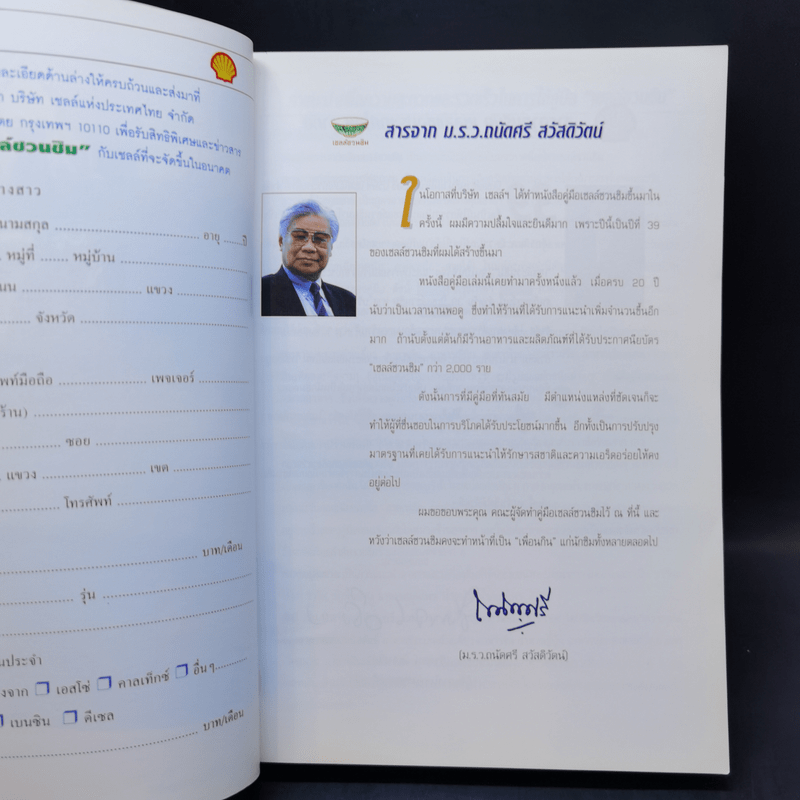 ละเอียดด้านล่างให้ครบถ้วนและส่งมาที่
บริษัท เชลล์แห่งประเทศไทย จำกัด
กรุงเทพฯ 10110 เพื่อรับสิทธิพิเศษและข่าวสาร
ล์ชวนชิม" กับเชลล์ที่จะจัดขึ้นในอนาคต
างสาว
นามสกุล .......... อายุ ...... ปี
หมู่ที่ ...... หมู่บ้าน ..........
นน .......... แขวง ..........
.......... จังหวัด ..........
พท์มือถือ .......... เพจเจอร์ ..........
ร้าน) ..........
.......... ซอย ..........
แขวง .......... เขต ..........
.......... โทรศัพท์ ..........
.......... บาท/เดือน
.......... รุ่น ..........
นประจำ
งจาก ❒ เอสโซ่ ❒ คาลเท็กซ์ ❒ อื่นๆ ..........
❒ เบนซิน ❒ ดีเซล
.......... บาท/เดือน
เชลล์ชวนชิม
สารจาก ม.ร.ว.ถนัดศรี สวัสดิวัตน์
ในโอกาสที่บริษัท เชลล์ฯ ได้ทำหนังสือคู่มือเชลล์ชวนชิมขึ้นมาใน
ครั้งนี้ ผมมีความปลื้มใจและยินดีมาก เพราะปีนี้เป็นปีที่ 39
ของเชลล์ชวนชิมที่ผมได้สร้างขึ้นมา
หนังสือคู่มือเล่มนี้เคยทำมาครั้งหนึ่งแล้ว เมื่อครบ 20 ปี
นับว่าเป็นเวลานานพอดู ซึ่งทำให้ร้านที่ได้รับการแนะนำเพิ่มจำนวนขึ้นอีก
มาก ถ้านับตั้งแต่ต้นก็มีร้านอาหารและผลิตภัณฑ์ที่ได้รับประกาศนียบัตร
"เชลล์ชวนชิม" กว่า 2,000 ราย
ดังนั้นการที่มีคู่มือที่ทันสมัย มีตำแหน่งแหล่งที่ชัดเจนก็จะ
ทำให้ผู้ที่ชื่นชอบในการบริโภคได้รับประโยชน์มากขึ้น อีกทั้งเป็นการปรับปรุง
มาตรฐานที่เคยได้รับการแนะนำให้รักษารสชาติและความเอร็ดอร่อยให้คง
อยู่ต่อไป
ผมขอขอบพระคุณ คณะผู้จัดทำคู่มือเชลล์ชวนชิมไว้ ณ ที่นี้ และ
หวังว่าเชลล์ชวนชิมคงจะทำหน้าที่เป็น "เพื่อนกิน" แก่นักชิมทั้งหลายตลอดไป
(ม.ร.ว.ถนัดศรี สวัสดิวัตน์)